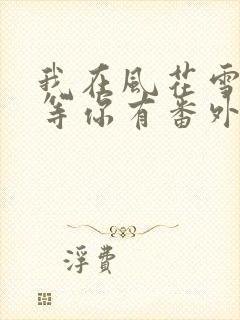 我在風花雪
等你有番外
浮費